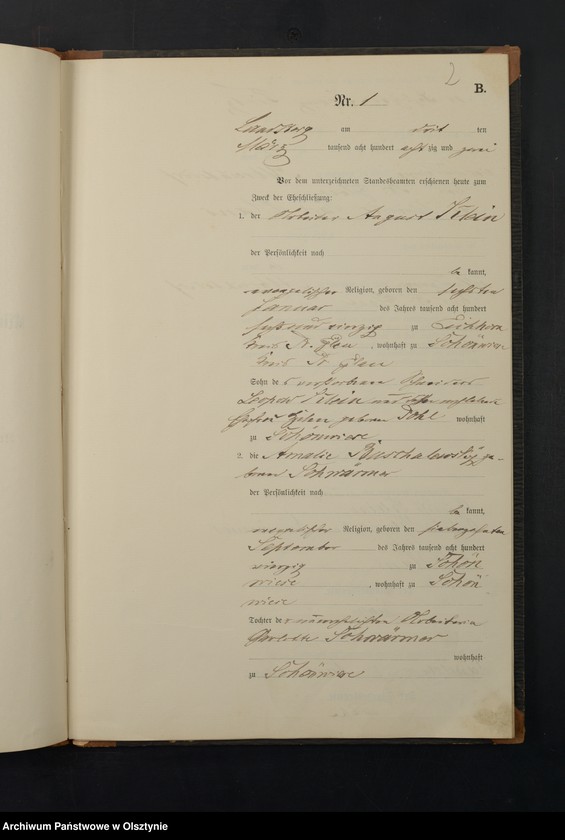 2
B.
Nr. 1
Landsberg am ten
März tausend acht hundert acht zig und zwei
Vor dem unterzeichneten Standesbeamten erschienen heute zum
Zweck der Eheschließung:
1. der Arbeiter August Klein
der Persönlichkeit nach
be kannt,
evangelischer Religion, geboren den sechsten
Januar des Jahres tausend acht hundert
sechs und vierzig zu
Kreis Pr. Eylau, wohnhaft zu Schönwiese
Kreis Pr. Eylau
Sohn des verstorbenen
Leopold Klein und
geboren Pohl wohnhaft
zu Schönwiese
2. die Amalie ge-
borene Schwärmer
der Persönlichkeit nach
be kannt,
evangelischer Religion, geboren den
September des Jahres tausend acht hundert
vierzig zu Schön
wiese, wohnhaft zu Schön
wiese
Tochter der unverehelichten Arbeiterin
Charlotte Schwärmer
wohnhaft
zu Schönwiese
Archiwum Państwowe w Olsztynie